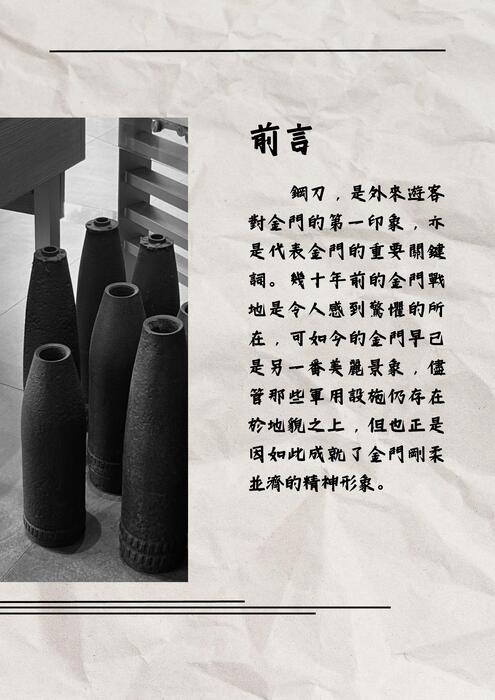 前言
鋼刀，是外來遊客
對金門的第一印象，亦
是代表金門的重要關鍵
詞。幾十年前的金門戰
地是令人感到驚懼的所
在，可如今的金門早已
是另一番美麗景象，儘
管那些軍用設施仍存在
於地貌之上，但也正是
因如此成就了金門剛柔
並濟的精神形象。